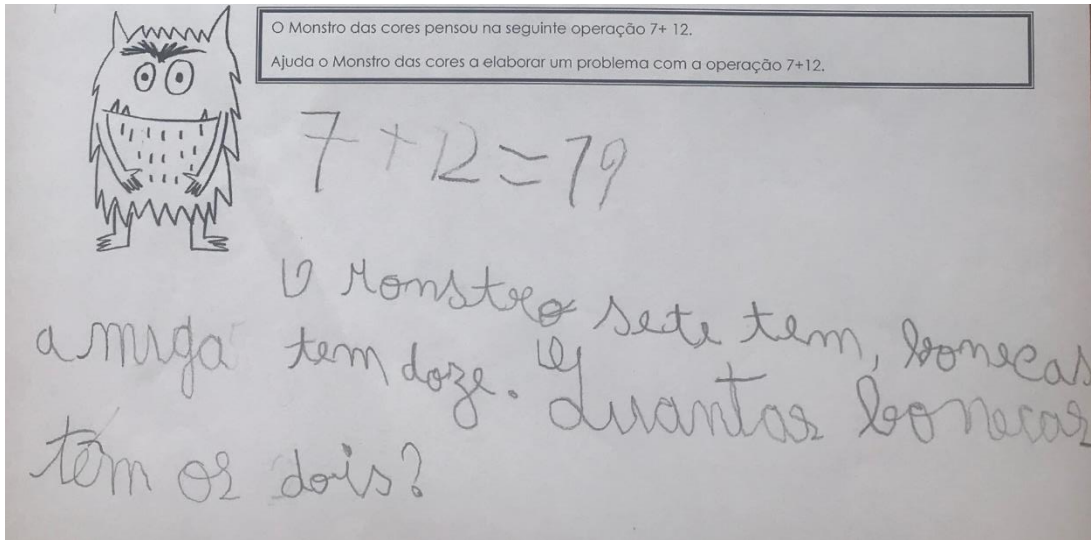 O Monstro das cores pensou na seguinte operação 7+ 12.
Ajuda o Monstro das cores a elaborar um problema com a operação 7+12.
7 + 12 = 19
O Monstro sete tem, bonecas
a miga tem doze. Quantas bonecas
têm os dois?